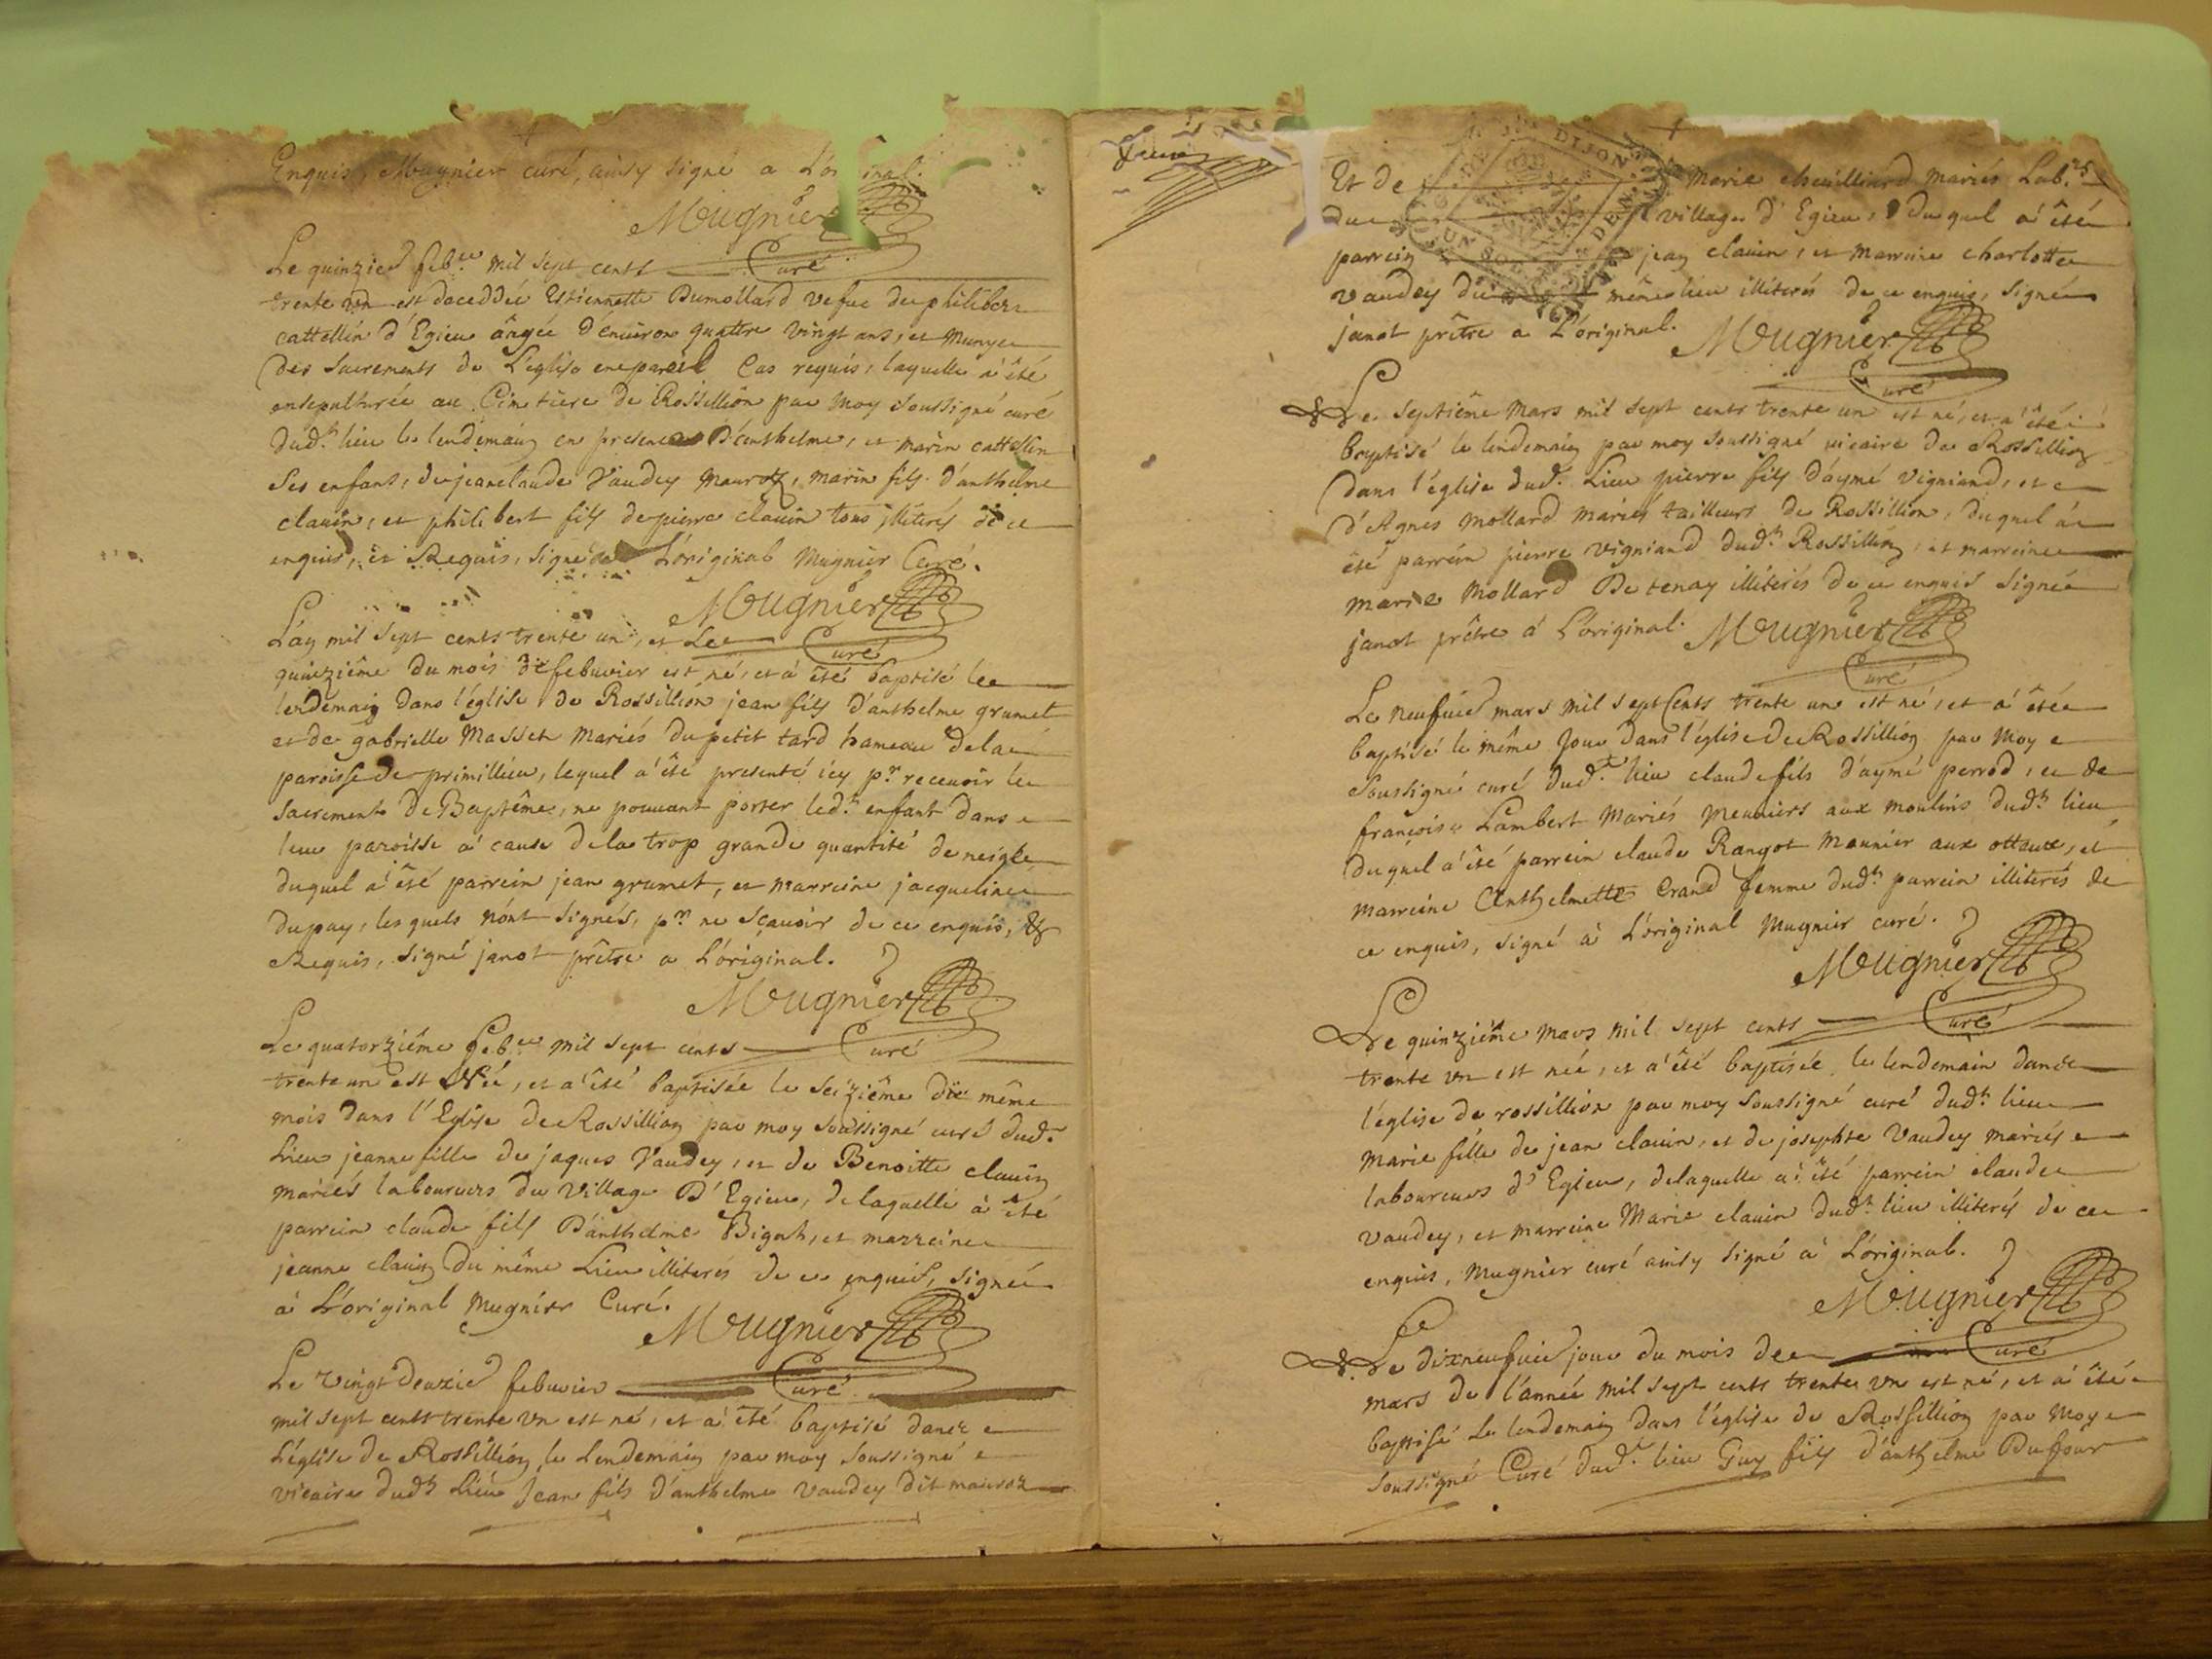 Enquis, Mugnier curé, ainsy signé a L'original.
Mugnier
Curé
Le quinzie febre mil sept cents
trente un est deceddée Estiennette Dumollard vefue de philibert
cattellin d'Egieu ângée d'enuiron quattre vingt ans, et munye
des Sacrements de L'eglise en pareil Cas requis, laquelle a' êté
ensepulturée au Cimetiere de Rossillion par moy soussigné curé
dudt lieu le lendemain en presence d'Anthelme, et marin cattellin
ses enfans, de jeanclaude Vaudey mauroz, marin fils d'anthelme
clauin, et philibert fils de pierre clauin tous illiterés de ce
enquis, et Requis, signé a L'original Mugnier Curé.
Mugnier
Curé
L'an mil sept cents trente un, et Le
quinziême du mois de febuvier est né, et a' êté baptisé le
lendemain dans l'église de Rossillion jean fils d'anthelme grumet
et de gabrielle Masset mariés du petit tard hameau de la
paroisse de primillieu, lequel a' êté presenté icy pr receuoir le
sacrement de Baptême, ne pouuant porter ledt enfant dans
leur paroisse a' cause de la trop grande quantité de neige
duquel a' êté parrein jean grumet, et marreine jacqueline
dupuy, lesquels n'ônt signés, pr ne sçauoir de ce enquis, &
Requis, signé janot prêtre a L'original.
Mugnier
Curé
Le quatorziême febre mil sept cents
trente un est Née, et a' êté baptisée le seiziême du même
mois dans l'Eglise de Rossillion par moy soussigné curé dudt
Lieu jeanne fille de jaques Vaudey, et de Benoitte clauin
mariés laboureurs du Village D'Egieu, de laquelle a' êté
parrein claude fils D'anthelme Bigot, et marreine
jeanne clauin du même Lieu illiterés de ce enquis, signé
a' L'original Mugnier Curé.
Mugnier
Curé
Le vingt deuxie febuvier
mil sept cents trente un est né, et a' êté baptisé dans
L'église de Rossillion le Lendemain par moy soussigné
vicaire dudt Lieu Jean fils d'anthelme vaudey dit mauroz
Et de Marie cheuilliard mariés Lab.rs
du village d'Egieu, duquel a' êté
parrein jean clauin, et marreine charlotte
vaudey du même lieu illiterés de ce enquis, signé
janot prêtre a L'original.
Mugnier
Curé
Le septiême Mars mil sept cents trente un est né, et a' êté
baptisé le lendemain par moy soussigné vicaire de Rossillion
dans l'église dudt Lieu pierre fils d'aymé vigniand, et
d'Agnes Mollard mariés tailleurs de Rossillion, duquel a
êté parrein pierre vigniand dudt Rossillion, et marreine
marie Mollard De tenay illiterés de ce enquis signé
janot prêtre a' L'original.
Mugnier
Curé
Le neufuie mars mil sept Cents trente un est né, et a' êté
baptisé le même jour dans l'église de Rossillion par moy
soussigné curé dudt lieu claude fils d'aymé perrod, et de
françoise Lambert mariés meuniers aux moulins dudt lieu
duquel a' êté parrein claude Rangot meunier aux ottaux, et
marreine Anthelmette Crand femme dudt parrein illiterés de
ce enquis, signé a' L'original Mugnier curé.
Mugnier
Curé
Le quinziême mars mil sept cents
trente un est née, et a' êté baptisée le lendemain dans
l'église de rossillion par moy soussigné curé dudt lieu
marie fille de jean clauin, et de josephte vaudey mariés
laboureurs d'Egieu, de laquelle a' êté parrein claude
vaudey, et marreine Marie clauin dudt lieu illiterés de ce
enquis, mugnier curé ainsy signé a' L'original.
Mugnier
Curé
Le dixneufuie jour du mois de
mars de l'année mil sept cents trente un est né, et a' êté
baptisé Le lendemain dans l'église de Rossillion par moy
soussigné Curé dudt lieu Guy fils d'anthelme Dufour